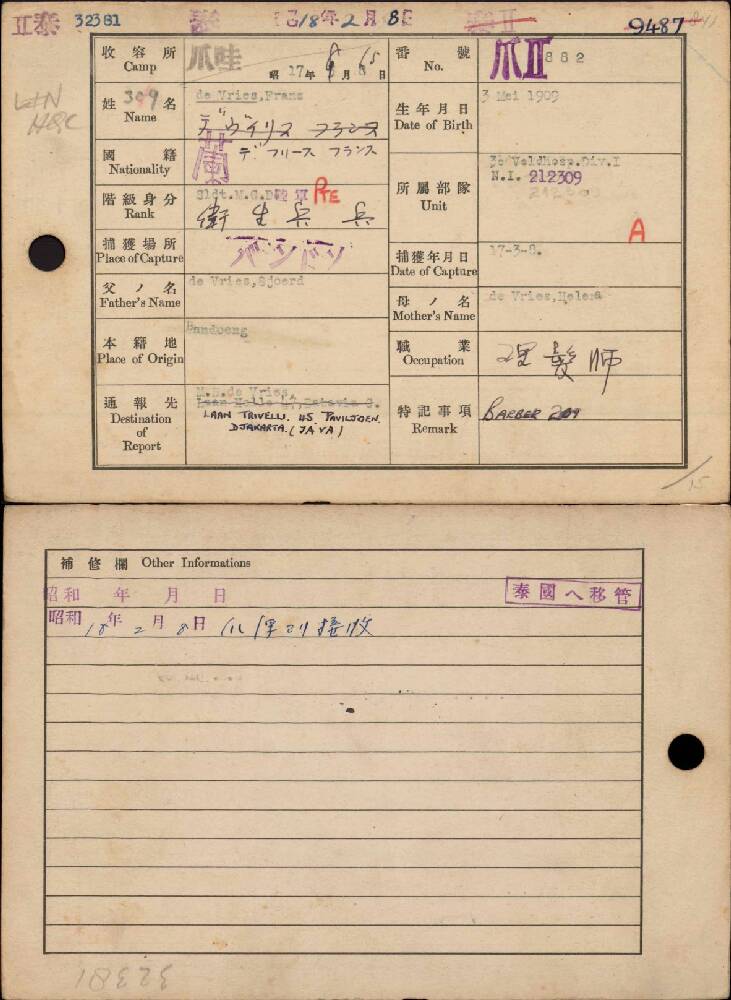 II泰 32381 泰 昭18年2月8日 泰II 9487
收容所 Camp 爪哇 昭17年 月 日
番號 No. 爪II 882
姓名 Name de Vries,Frans
デヴイリス フランス
生年月日 Date of Birth 3 Mei 1909
國籍 Nationality 蘭 デ フリース フランス
階級身分 Rank Sldt.M.G.D陸軍 PTE
衛生兵 兵
所屬部隊 Unit 3e Veldhosp.Div.I
N.I. 212309
A
捕獲場所 Place of Capture バンドン
捕獲年月日 Date of Capture 17-3-8.
父ノ名 Father's Name de Vries,Sjoerd
母ノ名 Mother's Name de Vries,Helena
本籍地 Place of Origin Bandoeng
職業 Occupation 理髪師
通報先 Destination of Report
LAAN TRIVELLI. 45 PAVILJOEN.
DJAKARTA. (JAVA)
特記事項 Remark BARBER 209
15
補修欄 Other Informations
昭和 年 月 日 泰國へ移管
昭和18年2月8日
32381